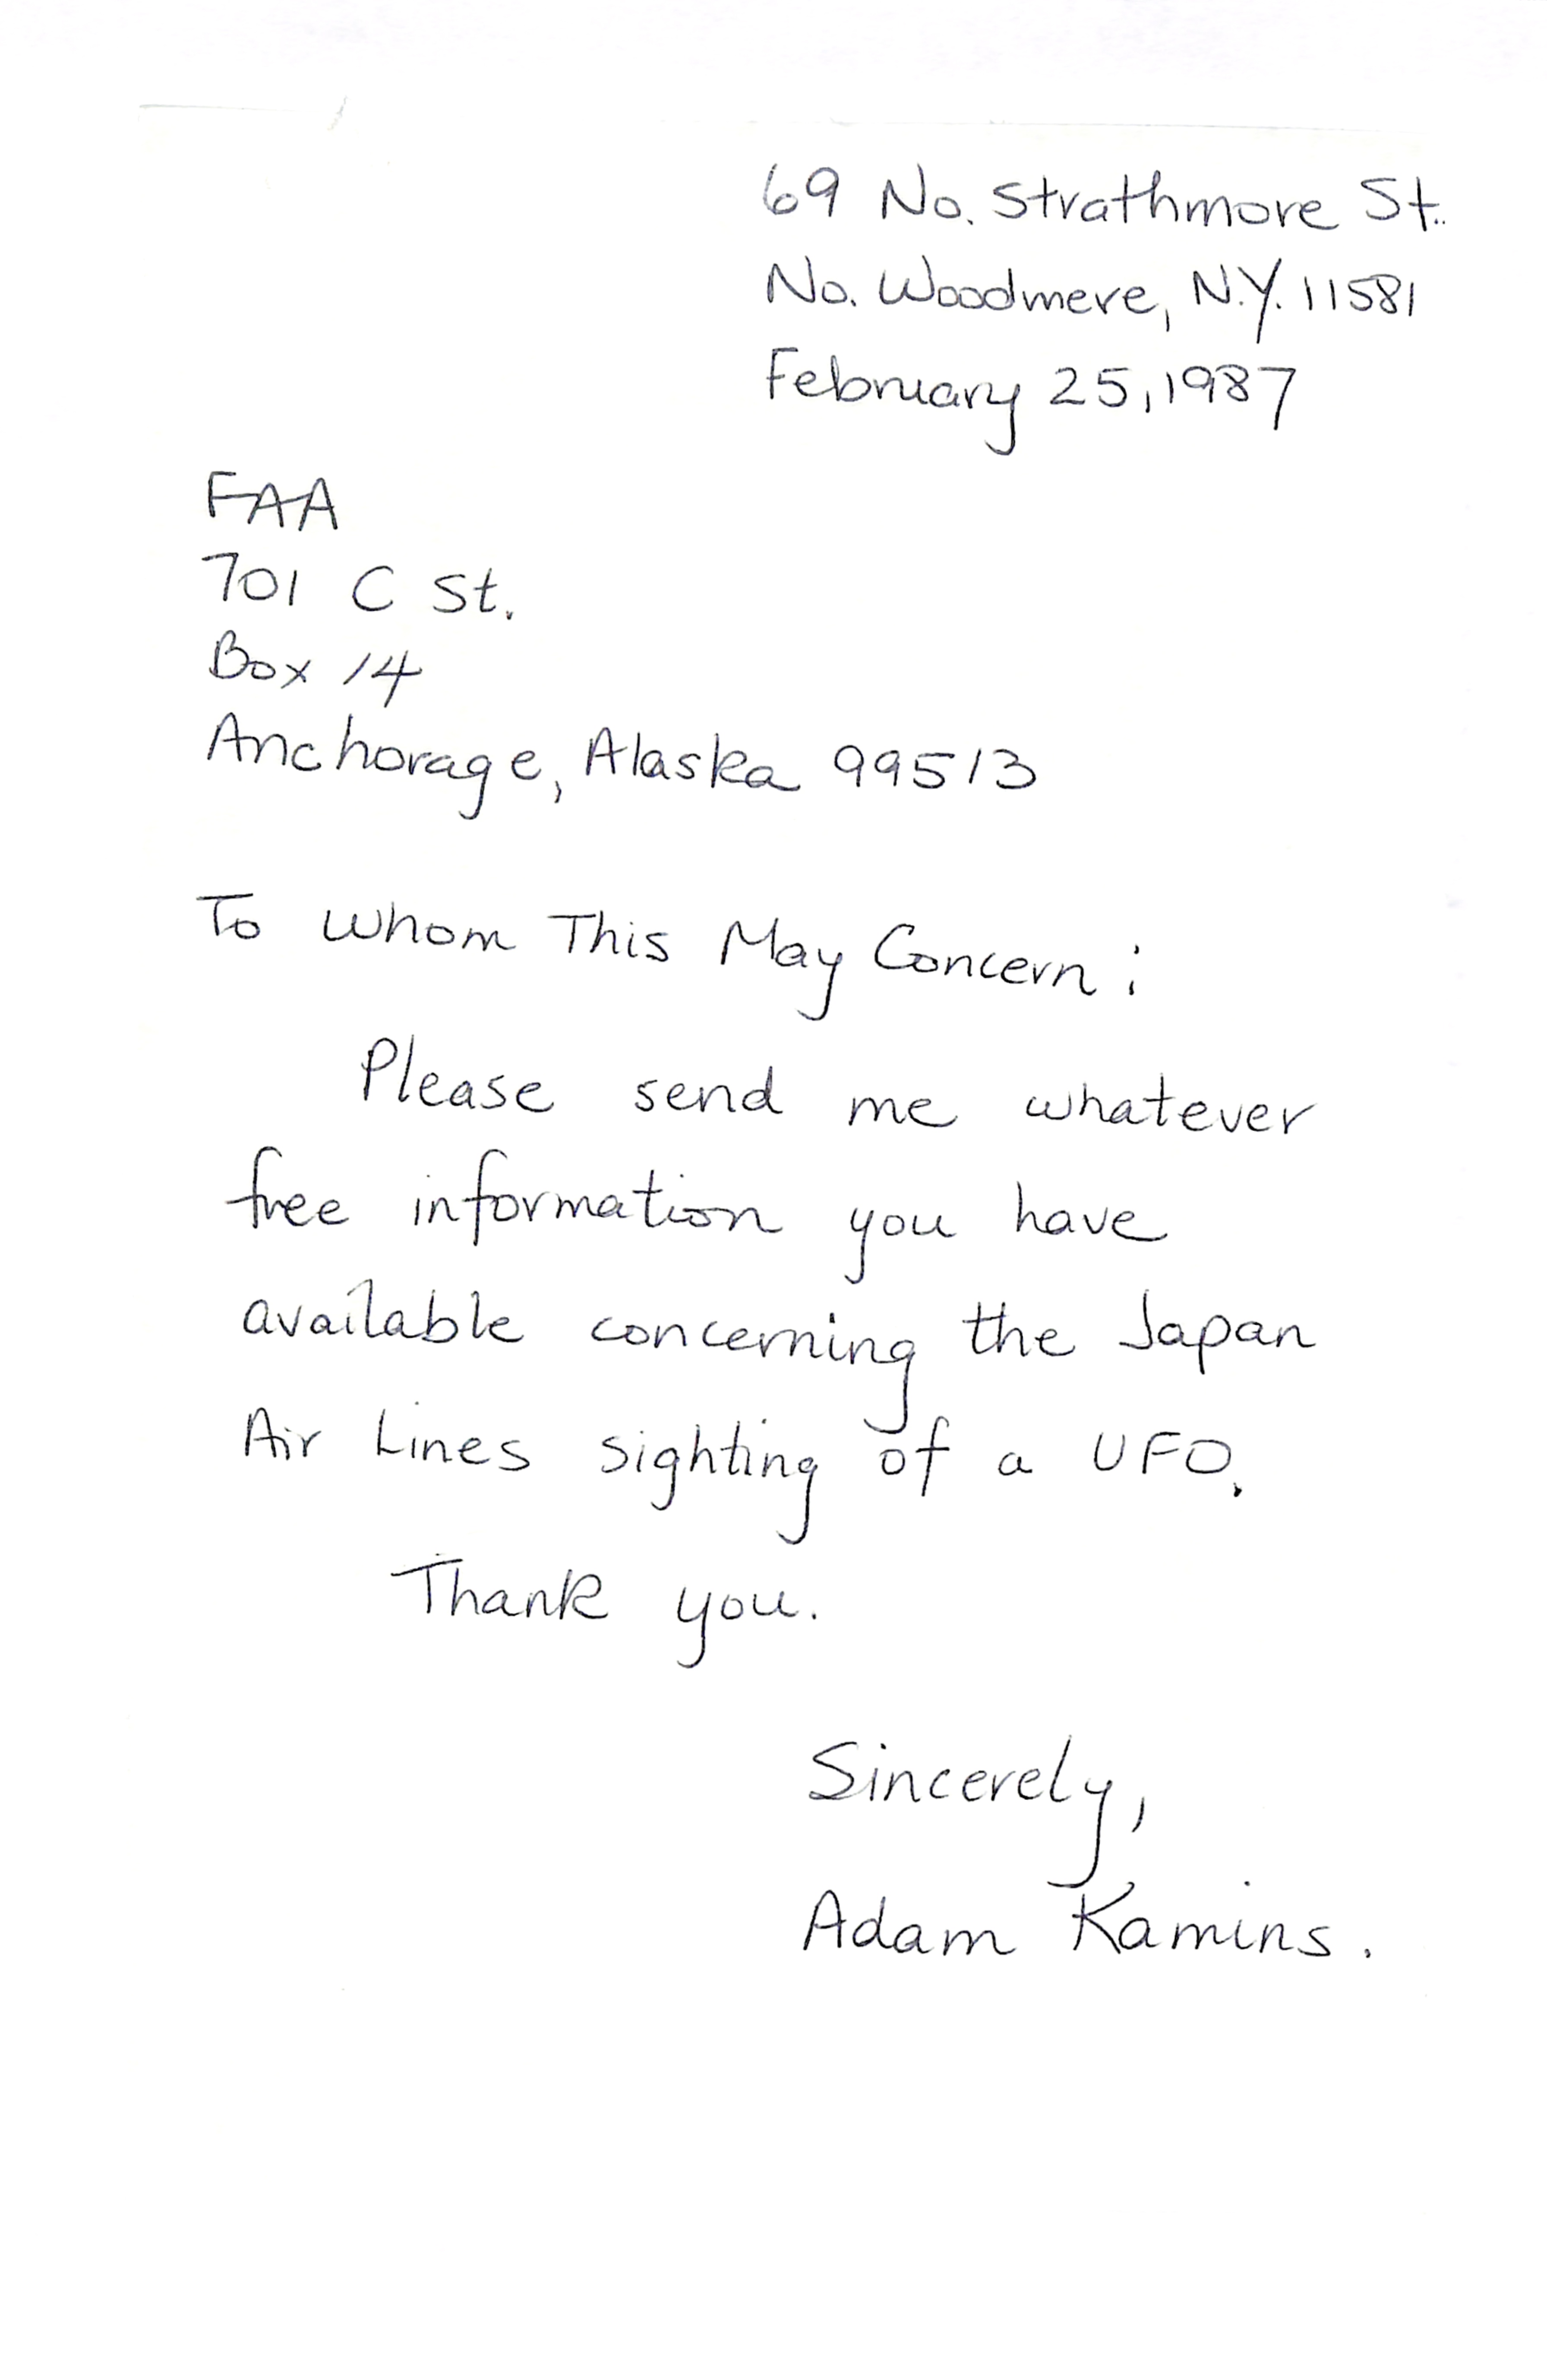 69 No. Strathmore St.
No. Woodmere, N.Y. 11581
February 25, 1987
FAA
701 C St.
Box 14
Anchorage, Alaska 99513
To Whom This May Concern:
Please send me whatever
free information you have
available concerning the Japan
Air Lines sighting of a UFO.
Thank you.
Sincerely,
Adam Kamins.